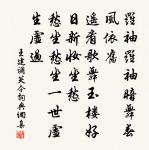 羅袖羅袖暗舞春
風依舊
遙看歌舞玉樓好
日新妝坐愁
愁坐愁坐一世虛
生虛過
王建調笑令